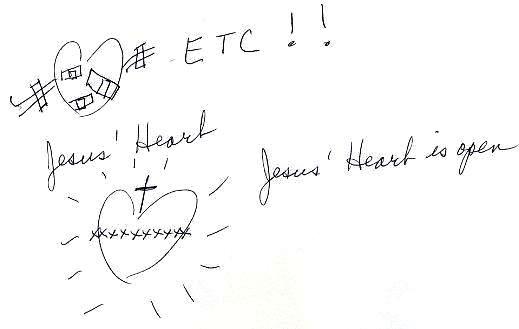 ETC !!
Jesus' Heart
Jesus' Heart is open